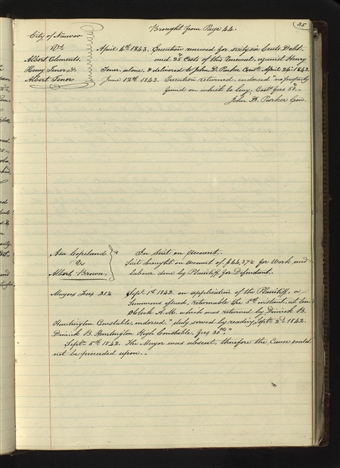 Brought from Page 44.
(45
City of Nauvoo
vs
Albert Clements
Henry
Albert
April 6th 1843. Execution renewed for sixty six Cents Debt.
and Costs of this Renewal, against Henry
alone, & delivered to John D. Parker Const. April 24th 1843.
June 12th 1843. Execution returned, endorsed "no property
found on which to levy. Const. fees 50.
John D. Parker Con
Asa Copeland
vs
Albert Brown.
In suit on Account.
Suit brought on account of for Work and
labour done by Plaintiff for Defendant.
Mayors Fees
Septr. 1st 1842. on application of the Plaintiff, a
Summons issued, returnable the 5th instant, at ten
OClock A.M. which was returned by Dimick B.
Huntington Constable, endorsed, "duly served by reading, Septr. 2d 1842.
Dimick B. Huntington High Constable. fees
Septr. 5th 1842. The Mayor was absent, therefore the Cause could
not be proceeded upon.